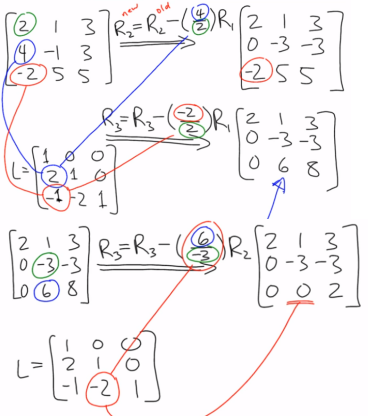 [2 1 3
4 -1 3
-2 5 5]
R₂ⁿᵉʷ = R₂ᵒˡᵈ - (4/2)R₁
[2 1 3
0 -3 -3
-2 5 5]
R₃ = R₃ - (-2/2)R₁
[2 1 3
0 -3 -3
0 6 8]
L = [1 0 0
2 1 0
-1 -2 1]
[2 1 3
0 -3 -3
0 6 8]
R₃ = R₃ - (6/-3)R₂
[2 1 3
0 -3 -3
0 0 2]
L = [1 0 0
2 1 0
-1 -2 1]